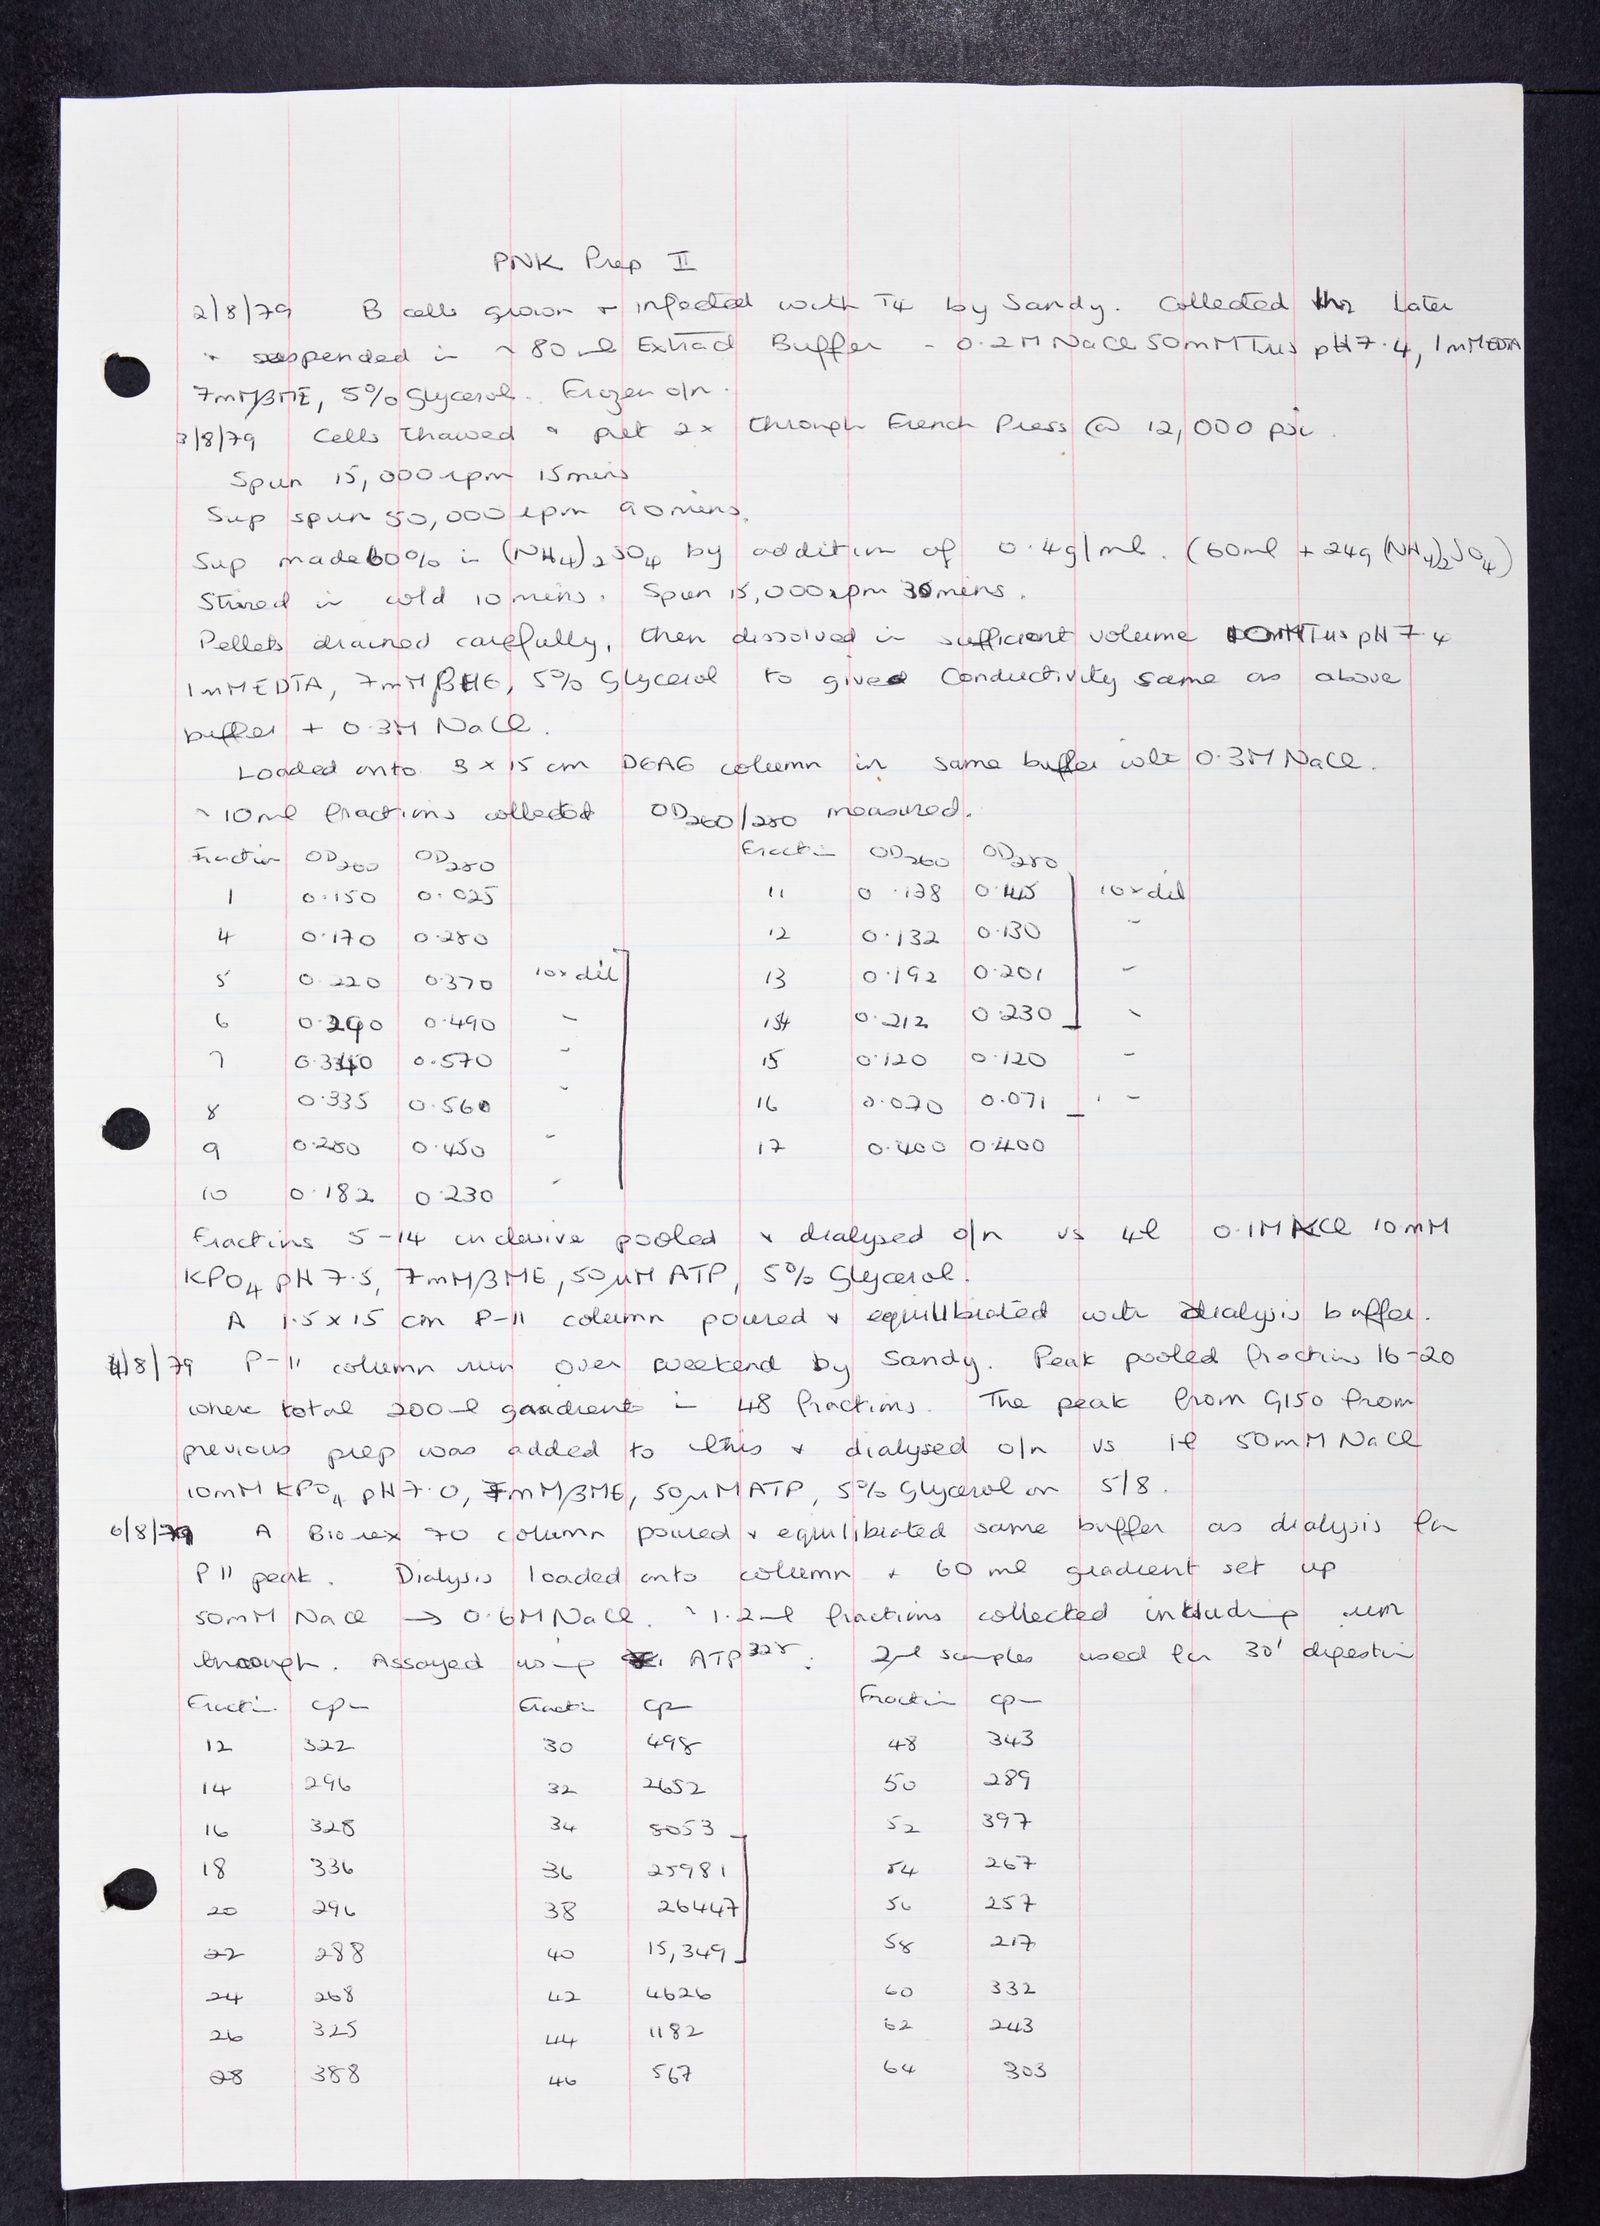 PNK Prep II
2/8/79 B cells grown + infected with T4 by Sandy. Collected later
+ suspended in ~80ml Extract Buffer - 0.2M NaCl 50mM Tris pH7.4, 1mM EDTA
7mMβME, 5% Glycerol. Frozen o/n.
3/8/79 Cells thawed + put 2x through French Press @ 12,000 psi.
Spun 15,000rpm 15mins
Sup spun 50,000rpm 90mins.
Sup made 60% in (NH4)2SO4 by addition of 0.4g/ml. (60ml + 24g (NH4)2SO4)
Stirred in cold 10mins. Spun 15,000rpm 30mins.
Pellets drained carefully, then dissolved in sufficient volume 10mM Tris pH 7.4
1mM EDTA, 7mM βME, 5% Glycerol to give Conductivity same as above
buffer + 0.3M NaCl.
Loaded onto 3 x 15 cm DEAE column in same buffer with 0.3M NaCl.
~10ml fractions collected OD260/280 measured.
Fraction OD260 OD280 Fraction OD260 OD280
1 0.150 0.025 11 0.138 0.145 10x dil
4 0.170 0.280 12 0.132 0.130 "
5 0.220 0.370 10x dil 13 0.192 0.201 "
6 0.290 0.490 " 14 0.212 0.230 "
7 0.340 0.570 " 15 0.120 0.120 "
8 0.335 0.560 " 16 0.070 0.071 "
9 0.280 0.450 " 17 0.400 0.400
10 0.182 0.230 "
Fractions 5-14 inclusive pooled + dialysed o/n vs 4l 0.1M KCl 10mM
KPO4 pH 7.5, 7mMβME, 50μM ATP, 5% Glycerol.
A 1.5 x 15 cm P-11 column poured + equilibrated with dialysis buffer.
4/8/79 P-11 column run over weekend by Sandy. Peak pooled fractions 16-20
where total 200ml gradient in 48 fractions. The peak from G150 from
previous prep was added to this + dialysed o/n vs 1l 50mM NaCl
10mM KPO4 pH7.0, 7mMβME, 50μM ATP, 5% Glycerol on 5/8.
6/8/79 A Biorex 70 column poured + equilibrated same buffer as dialysis for
P11 peak. Dialysis loaded onto column + 60ml gradient set up
50mM NaCl → 0.6M NaCl. ~1.2ml fractions collected including run
through. Assayed using ATP32γ. 2μl samples used for 30' digestion
Fraction cpm Fraction cpm Fraction cpm
12 322 30 498 48 343
14 296 32 2652 50 289
16 328 34 8053 52 397
18 336 36 25981 54 267
20 296 38 26447 56 257
22 288 40 15,349 58 217
24 268 42 4626 60 332
26 325 44 1182 62 243
28 388 46 567 64 303